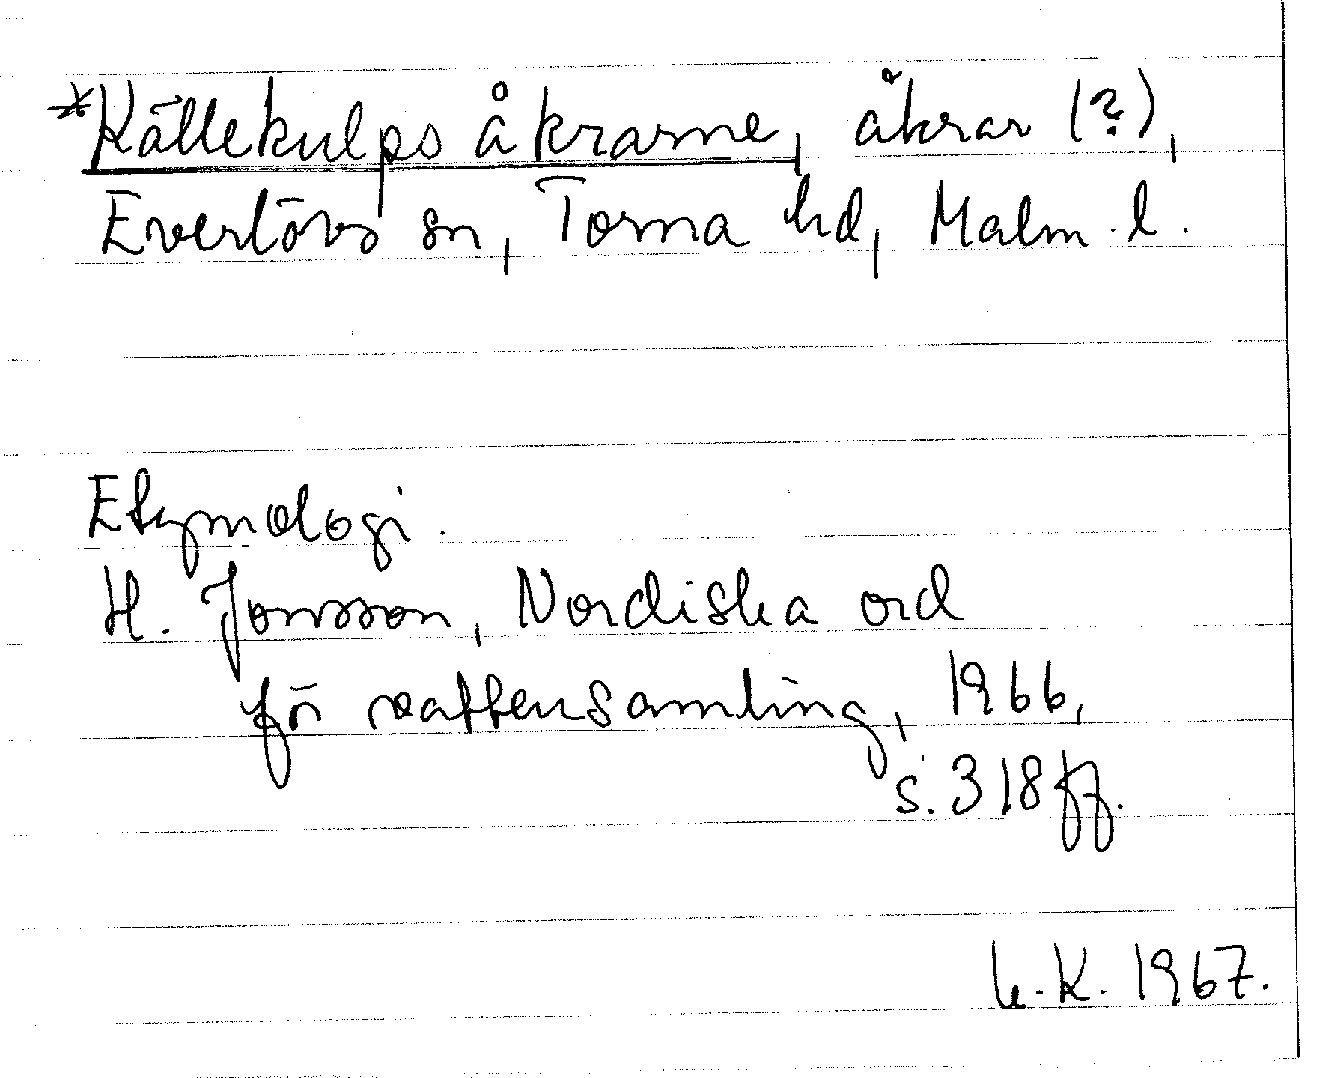 *Källekulps åkrarne, åkrar (?),
Everlövs sn, Torna hd, Malm. l.
Etymologi.
H. Jonsson, Nordiska ord
för vattensamling, 1966,
s. 318 ff.
K. 1967.